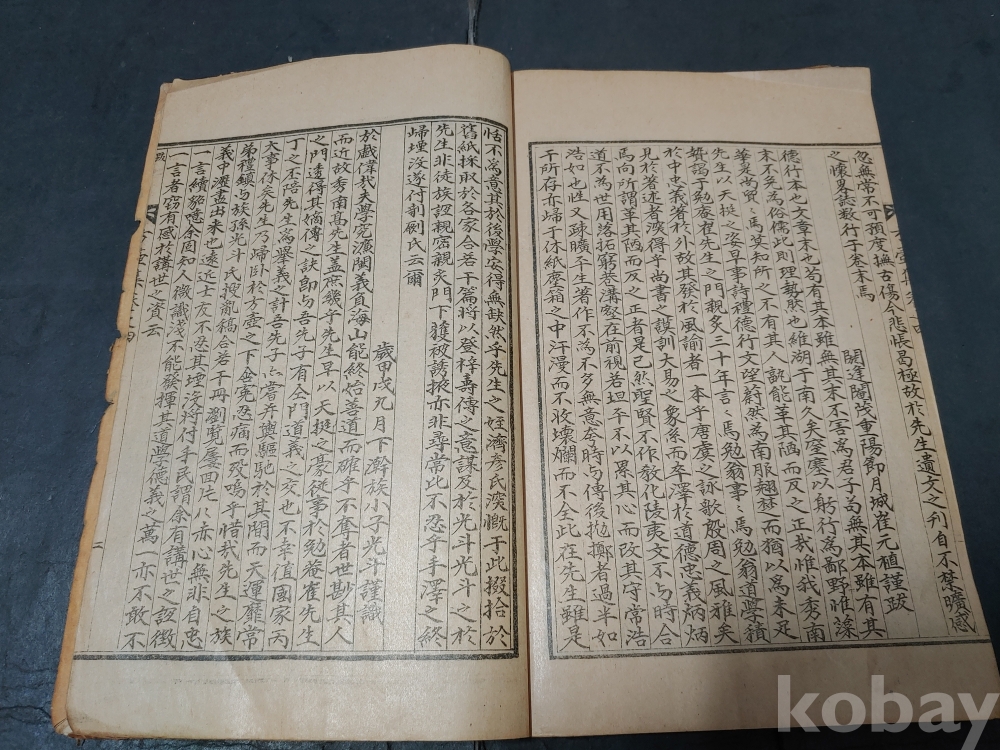 忽無常不可預度撫古傷今悲悵曷極故於先生遺文之刊自不禁曠感
之懷畧誌數行于卷末焉
閼逢閹茂重陽節月城崔元植謹跋
德行本也文章末也苟有其本雖無其末不害爲君子苟無其本雖有其
末不免爲俗儒此則理勢然也維湖于南久矣座塞以躬行爲鄙野惟藻
華是尚貿貿焉莫知所之不有其人孰能革其陋而反之正哉惟我秀南
先生以天挺之姿早事詩禮德行文望蔚然爲南服翹楚而猶以爲未足
贄謁于勉菴崔先生之門親炙三十年言言焉勉翁事事焉勉翁道學積
於中忠義著於外故其發於風諭者一本乎唐虞之詠歌殷周之風雅矣
見於著述者深得乎尚書之謨訓大易之象系而卒澤於道德忠義炳炳
焉向所謂革其陋而反之正者是已然聖賢不作敎化陵夷文不與時合
道不爲世用落拓窮巷溝壑在前視若坦平不以累其心而改其守常浩
浩如也性又疎曠平生著作不爲不多無意於時與傳後抛擲者過半如
干所存亦歸于休紙塵箱之中汗漫而不收壞爛而不全此在先生雖是
恬不爲意其於後學安得無缺然乎先生之姪濟彥氏深慨于此掇拾於
舊紙採取於各家合若干篇將以登梓壽傳之意謀及於光斗光斗之於
先生非徒族誼親密親炙門下獲被誘掖亦非尋常此不忍乎手澤之終
歸堙沒遂付剞劂氏云爾
歲甲戌九月下澣族小子光斗謹識
於戲偉哉夫學究濂閩義貫海山能終始善道而確乎不奪者世尠其人
而近故秀南高先生盖庶幾乎先生早以天挺之豪從事於勉菴崔先生
之門透得其嫡傳之訣卽與吾先子有仝門道義之交也不幸値國家丙
丁之否陪先生爲擧義之計吾先子亦嘗并輿驅馳於其間而天運靡常
大事休矣先生乃歸臥於方壺之下齎寃忍痛而歿嗚乎惜哉先生之族
弟禮鎭與族孫光斗氏搜亂稿合若干冊瀏覽屢回片片赤心無非自忠
義中瀝盡出來也遠近士友不忍其堙沒將付手民謂余有講世之誼徵
一言續貂噫余固知人微識淺不能發揮其道學德義之萬一亦不敢不
一言者竊有感於講世之資云
跋
二